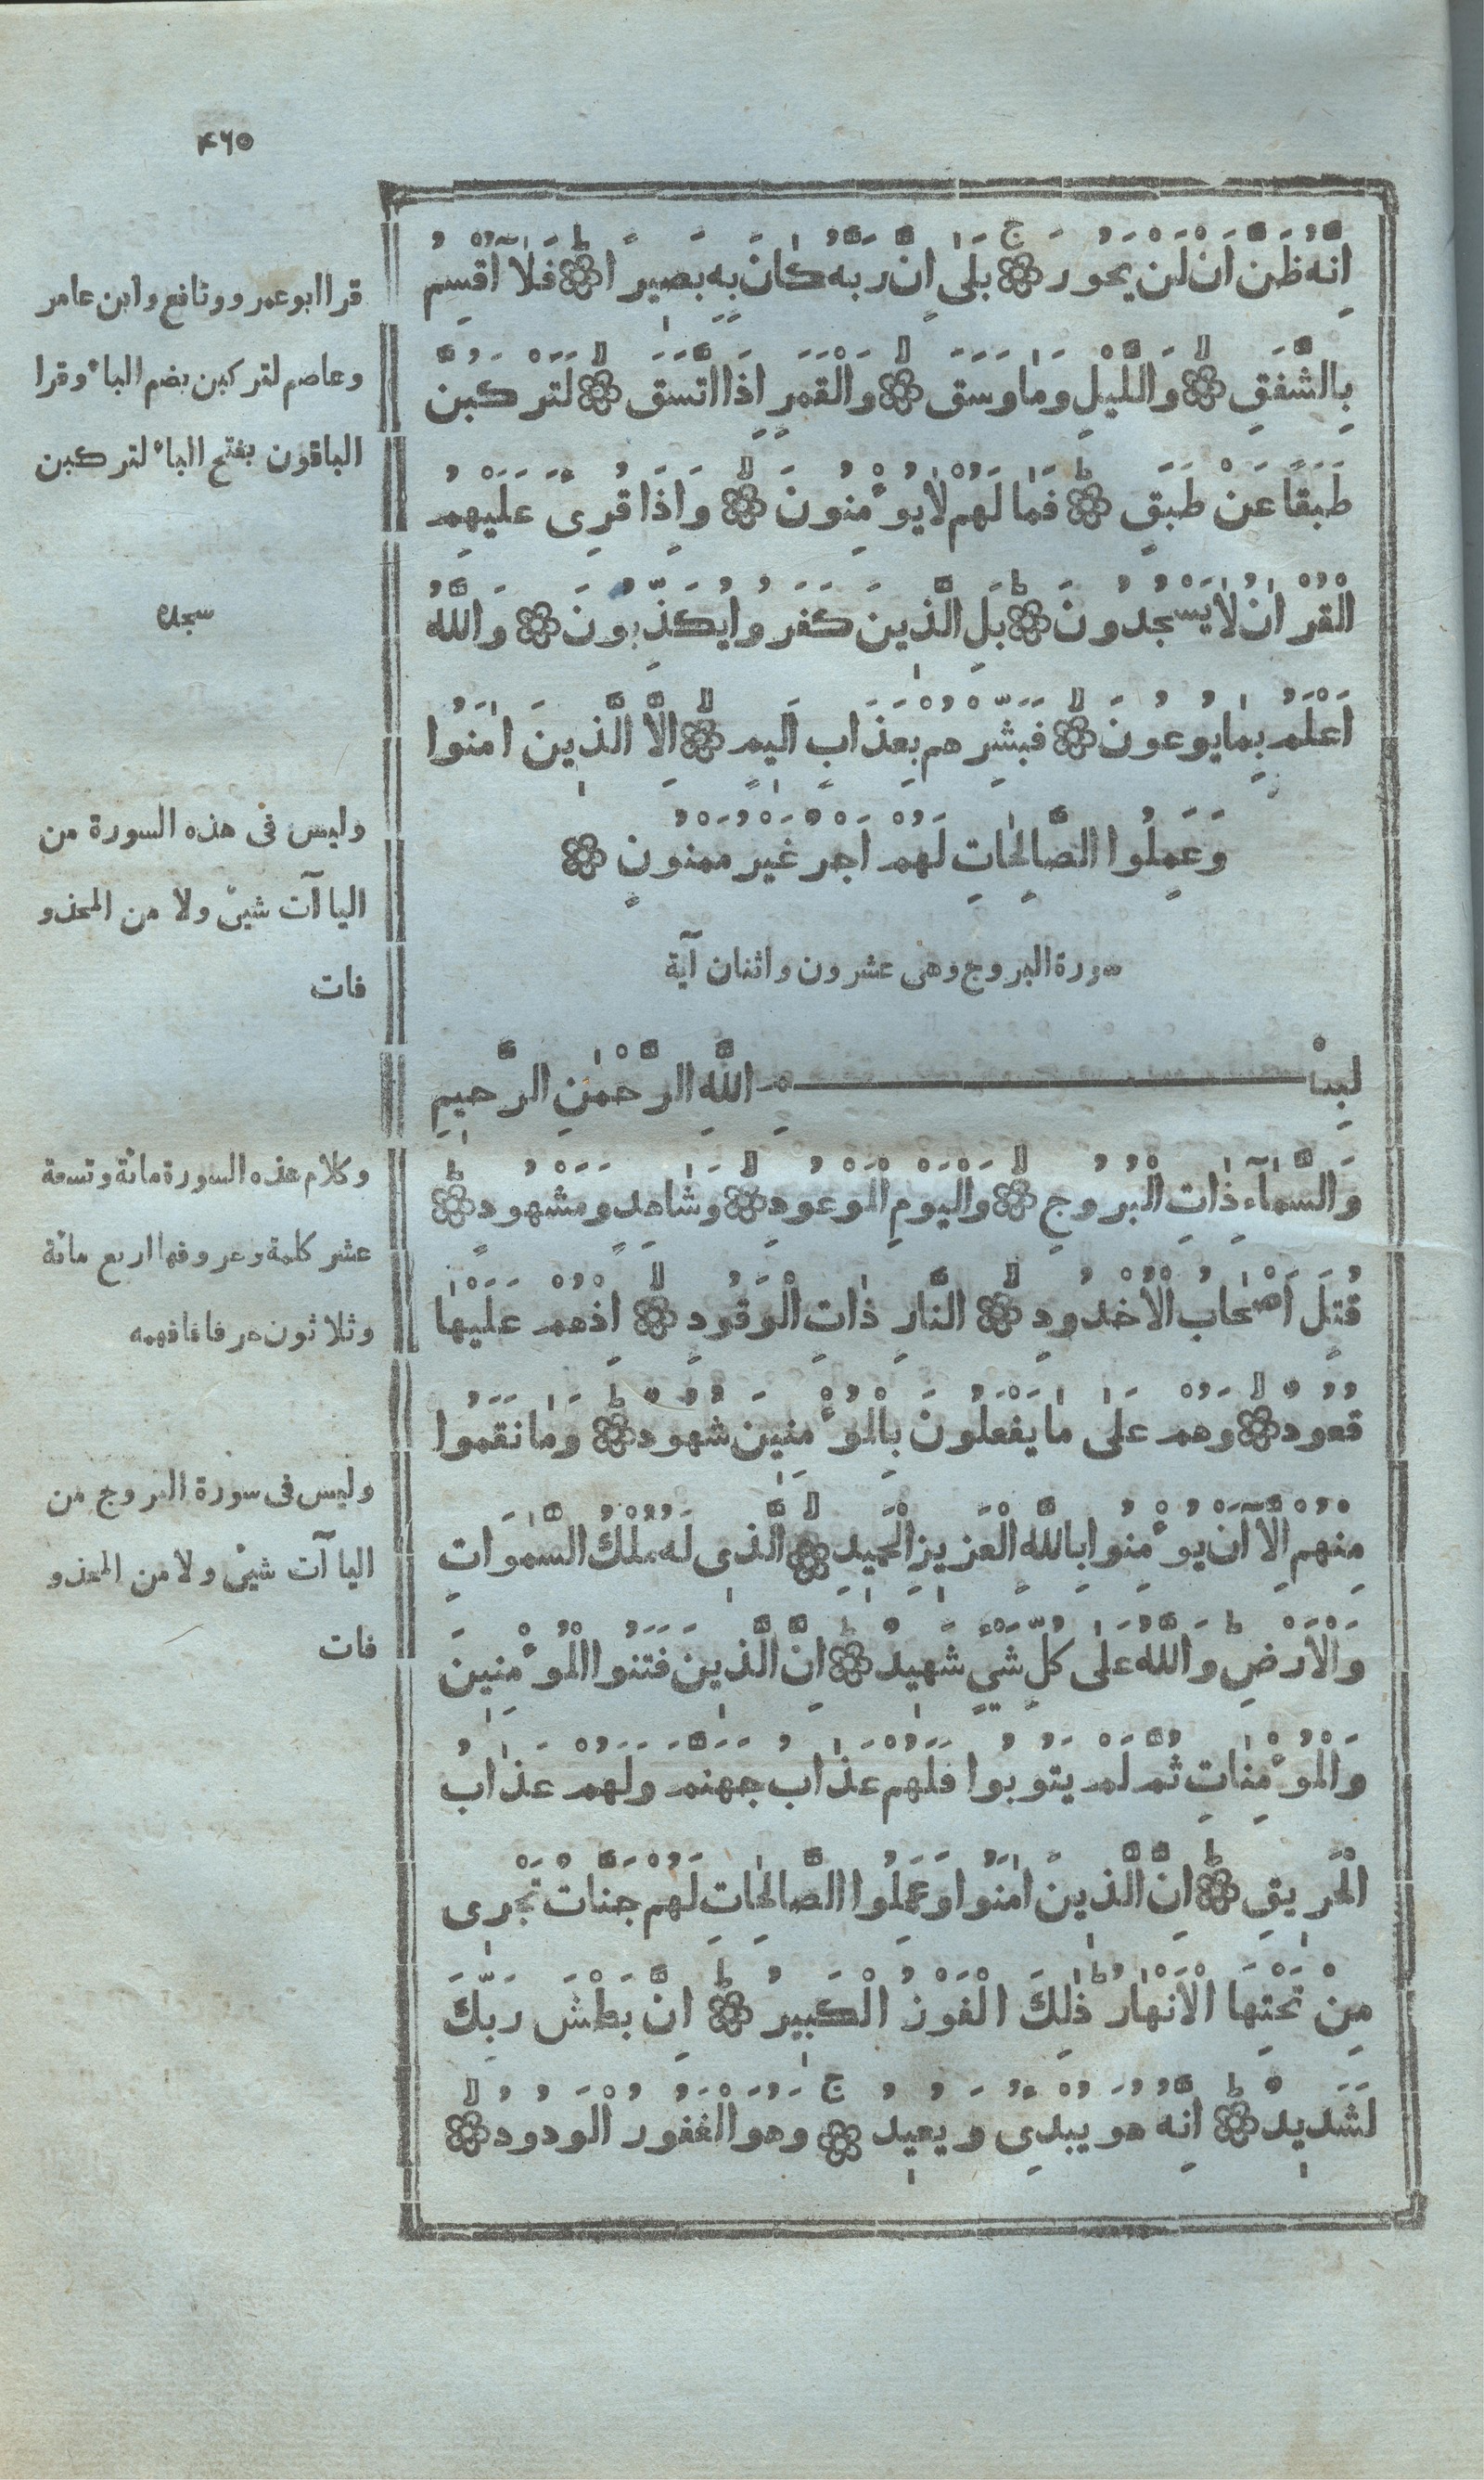 ۴۶۵
اِنَّهُ ظَنَّ اَنْ لَنْ يَحُورَ ۞ ج بَلٰى اِنَّ رَبَّهُ كَانَ بِهِ بَصِيرًا ۞ ط فَلَآ اُقْسِمُ
بِالشَّفَقِ ۞ لا وَالَّيْلِ وَمَا وَسَقَ ۞ لا وَالْقَمَرِ اِذَا اتَّسَقَ ۞ لا لَتَرْكَبُنَّ
طَبَقًا عَنْ طَبَقٍ ۞ ط فَمَا لَهُمْ لَا يُؤْمِنُونَ ۞ لا وَاِذَا قُرِىَٔ عَلَيْهِمُ
الْقُرْاٰنُ لَا يَسْجُدُونَ ۞ ط بَلِ الَّذِينَ كَفَرُوا يُكَذِّبُونَ ۞ وَاللّٰهُ
اَعْلَمُ بِمَا يُوعُونَ ۞ لا فَبَشِّرْهُمْ بِعَذَابٍ اَلِيمٍ ۞ لا اِلَّا الَّذِينَ اٰمَنُوا
وَعَمِلُوا الصَّالِحَاتِ لَهُمْ اَجْرٌ غَيْرُ مَمْنُونٍ ۞
سورة البروج وهى عشرون واثنان آية
بِسْمِ اللّٰهِ الرَّحْمٰنِ الرَّحِيمِ
وَالسَّمَآءِ ذَاتِ الْبُرُوجِ ۞ لا وَالْيَوْمِ الْمَوْعُودِ ۞ لا وَشَاهِدٍ وَمَشْهُودٍ ۞ ط
قُتِلَ اَصْحَابُ الْاُخْدُودِ ۞ لا النَّارِ ذَاتِ الْوَقُودِ ۞ لا اِذْ هُمْ عَلَيْهَا
قُعُودٌ ۞ لا وَهُمْ عَلٰى مَا يَفْعَلُونَ بِالْمُؤْمِنِينَ شُهُودٌ ۞ ط وَمَا نَقَمُوا
مِنْهُمْ اِلَّآ اَنْ يُؤْمِنُوا بِاللّٰهِ الْعَزِيزِ الْحَمِيدِ ۞ لا الَّذِى لَهُ مُلْكُ السَّمٰوَاتِ
وَالْاَرْضِ ط وَاللّٰهُ عَلٰى كُلِّ شَىْءٍ شَهِيدٌ ۞ ط اِنَّ الَّذِينَ فَتَنُوا الْمُؤْمِنِينَ
وَالْمُؤْمِنَاتِ ثُمَّ لَمْ يَتُوبُوا فَلَهُمْ عَذَابُ جَهَنَّمَ وَلَهُمْ عَذَابُ
الْحَرِيقِ ۞ ط اِنَّ الَّذِينَ اٰمَنُوا وَعَمِلُوا الصَّالِحَاتِ لَهُمْ جَنَّاتٌ تَجْرِى
مِنْ تَحْتِهَا الْاَنْهَارُ ط ذٰلِكَ الْفَوْزُ الْكَبِيرُ ۞ ط اِنَّ بَطْشَ رَبِّكَ
لَشَدِيدٌ ۞ ط اِنَّهُ هُوَ يُبْدِئُ وَيُعِيدُ ۞ ج وَهُوَ الْغَفُورُ الْوَدُودُ ۞ لا
قرا ابو عمرو ونافع وابن عامر
وعاصم لتركبن بضم الباء وقرا
الباقون بفتح الباء لتركبن
سجده
وليس فى هذه السورة من
الياآت شيئ ولا من المحذو
فات
وكلام هذه السورة مائة وتسعة
عشر كلمة وحروفها اربع مائة
وثلاثون حرفا فافهمه
وليس فى سورة البروج من
الياآت شيئ ولا من المحذو
فات